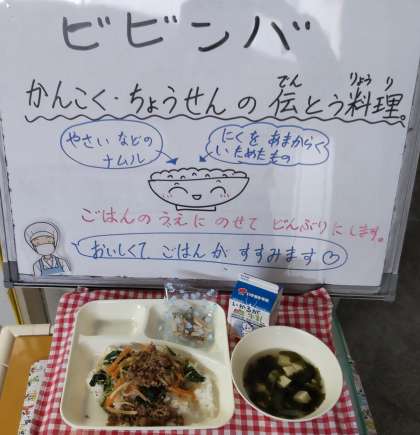 ビビンバ
かんこく・ちょうせんの伝とう料理。
でん りょうり
やさいなどの
ナムル
にくをあまからく
いためたもの
ごはんのうえにのせてどんぶりにします。
おいしくてごはんがすすみます♡